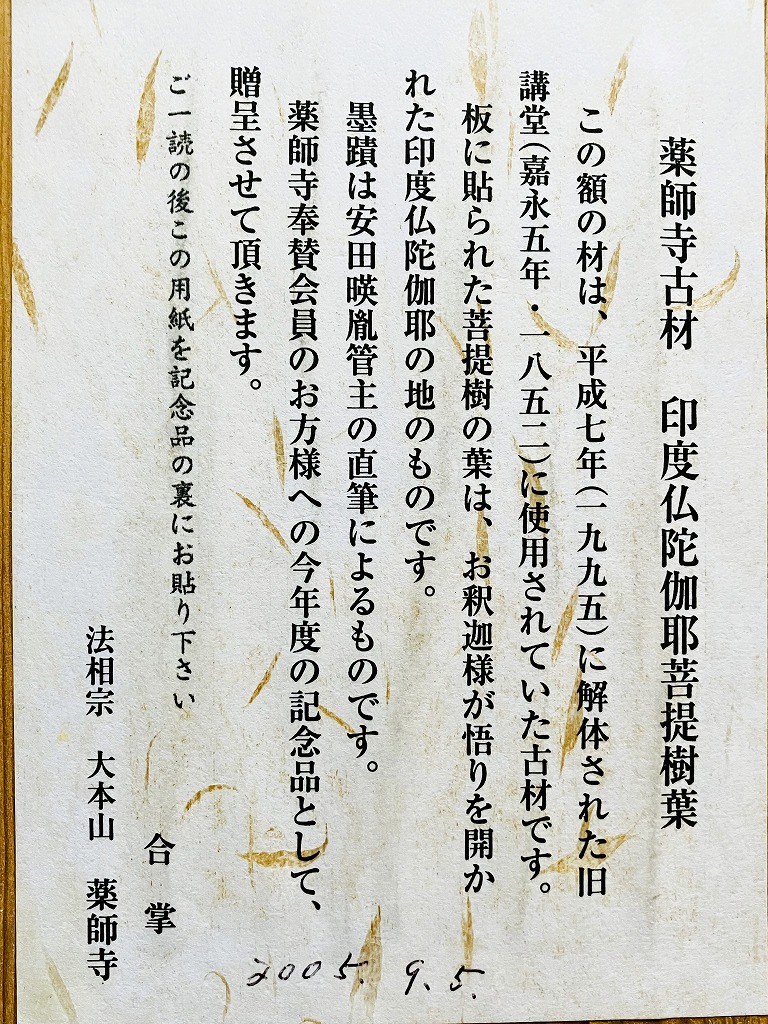 薬師寺古材　印度仏陀伽耶菩提樹葉
この額の材は、平成七年(一九九五)に解体された旧
講堂(嘉永五年・一八五二)に使用されていた古材です。
板に貼られた菩提樹の葉は、お釈迦様が悟りを開か
れた印度仏陀伽耶の地のものです。
墨蹟は安田暎胤管主の直筆によるものです。
薬師寺奉賛会員のお方様への今年度の記念品として、
贈呈させて頂きます。
ご一読の後この用紙を記念品の裏にお貼り下さい
合掌
法相宗　大本山　薬師寺
2005. 9. 5.